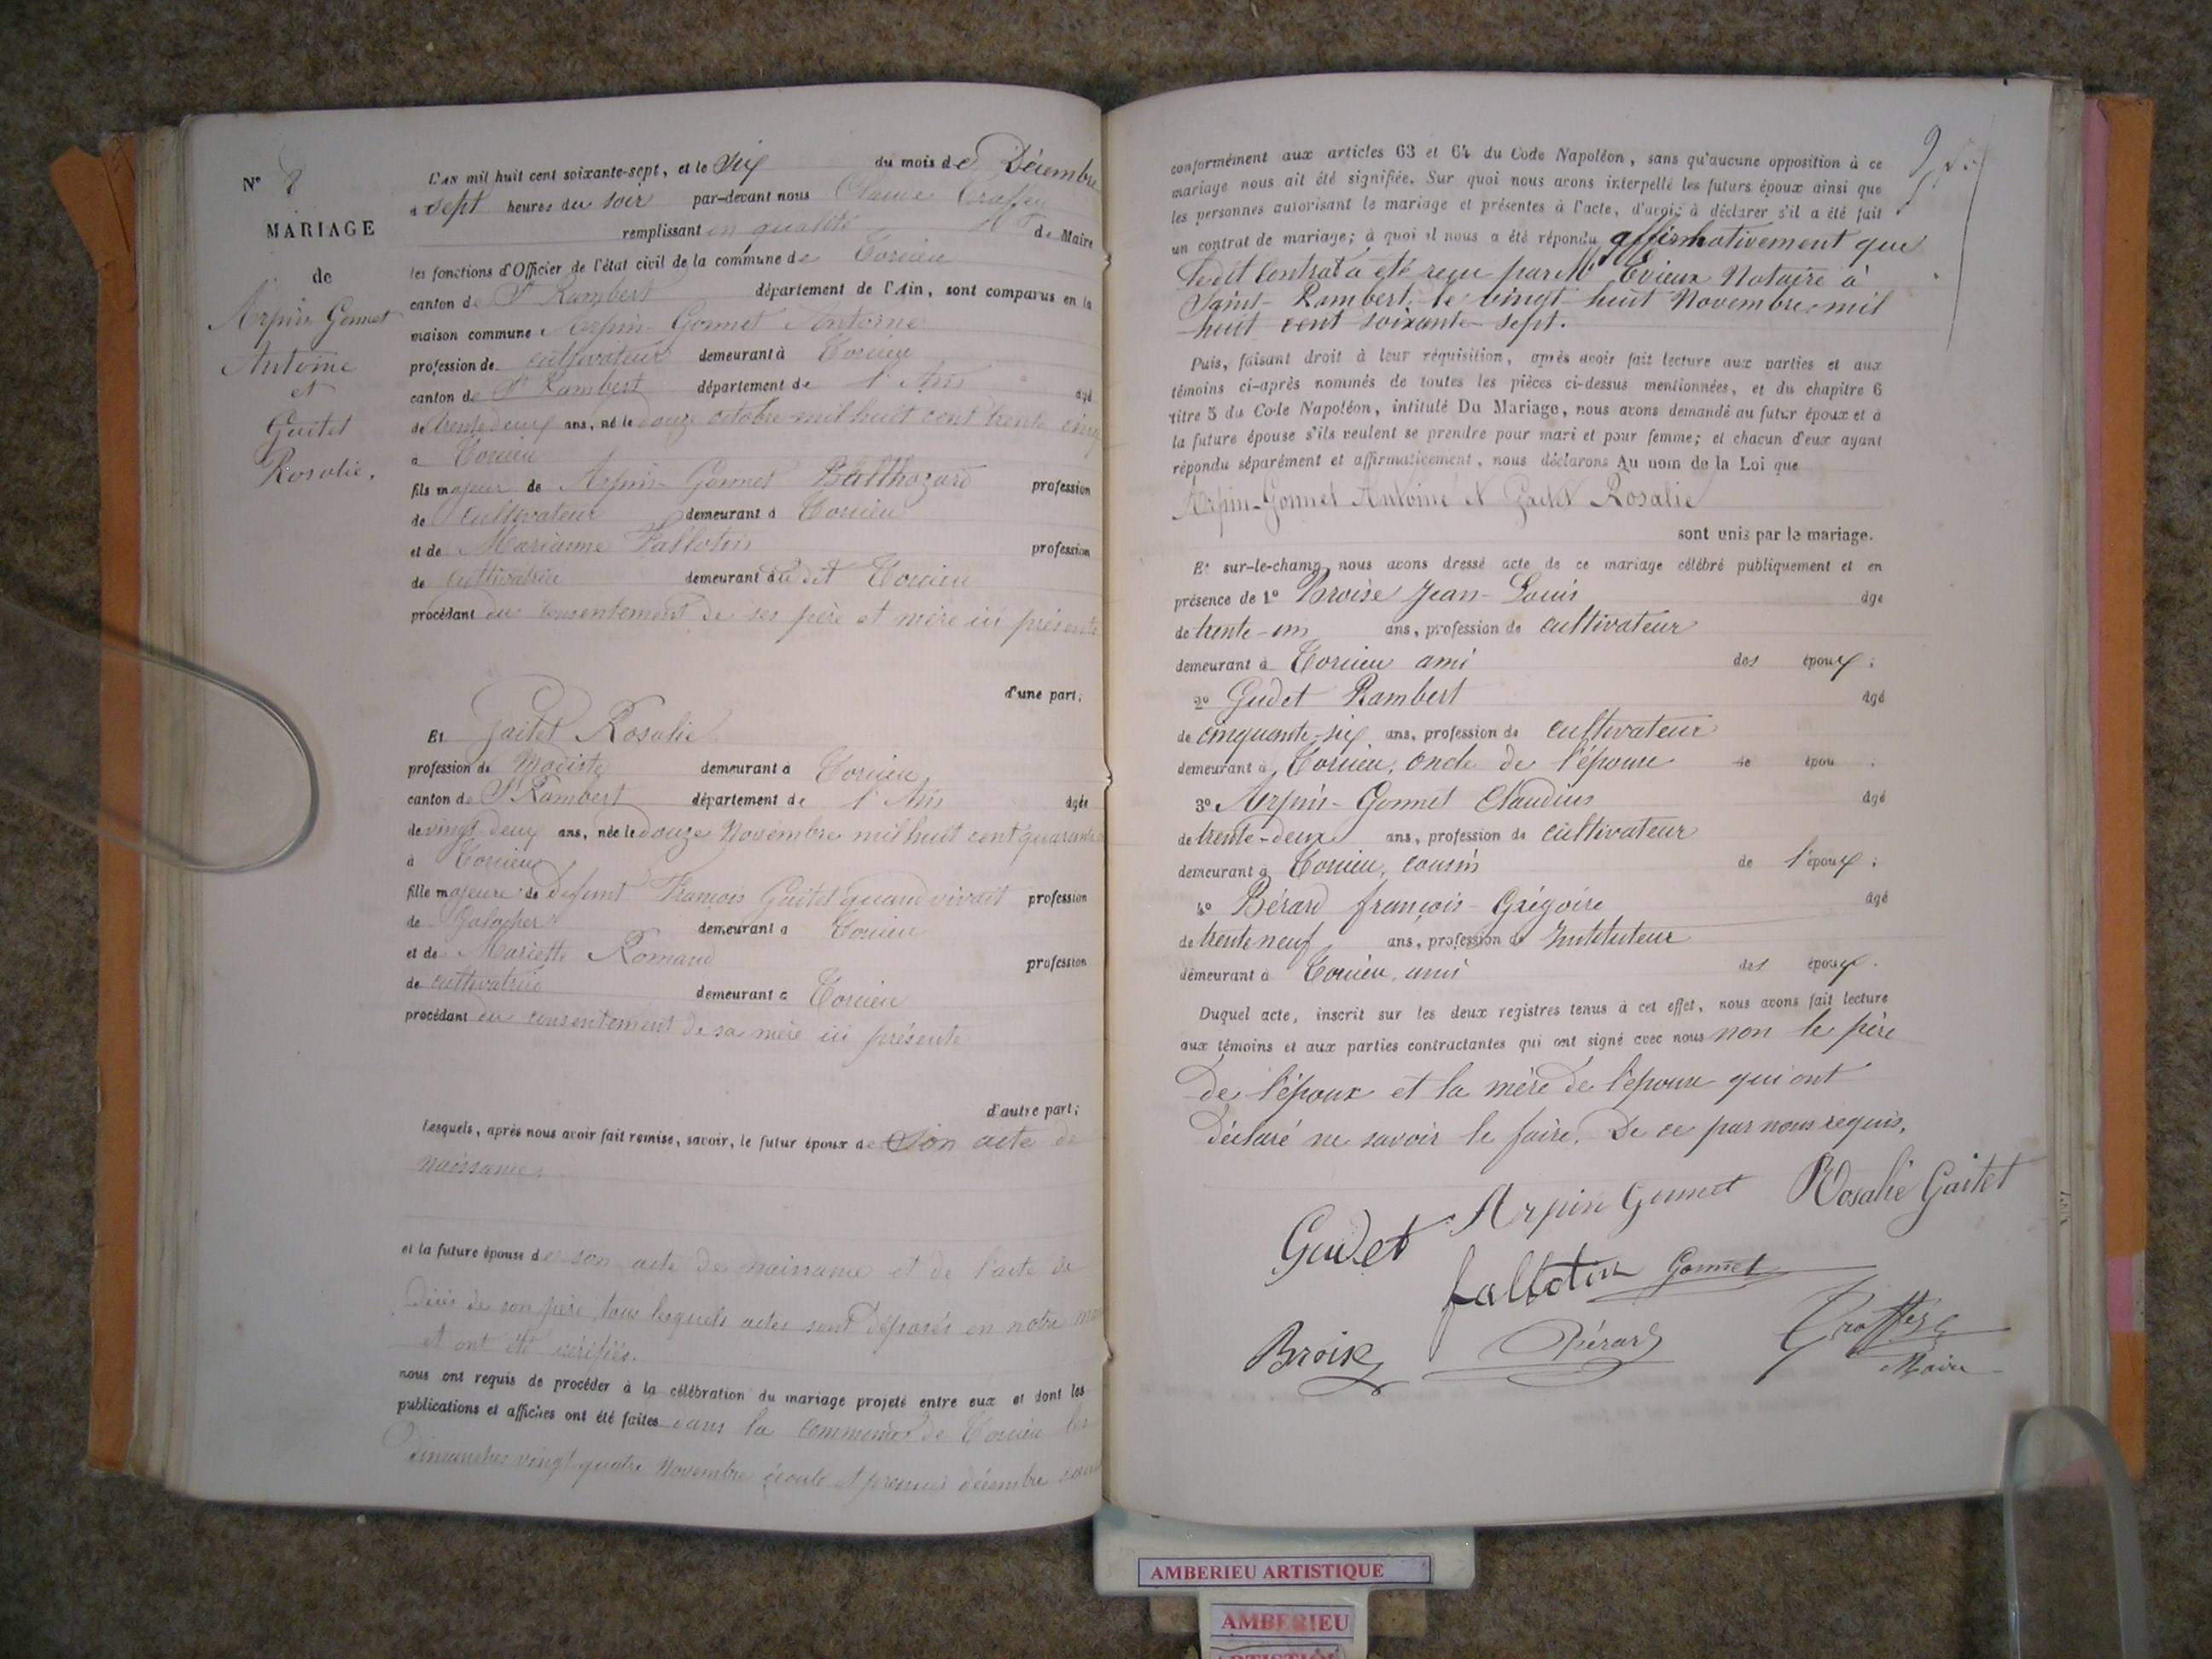 N° 8
MARIAGE
de
Arpin Gonnet
Antoine
et
Gaitet
Rosalie.
L'AN mil huit cent soixante-sept, et le Six du mois de Décembre
à sept heures du soir par-devant nous Claude
remplissant en qualité de Maire
les fonctions d'Officier de l'état civil de la commune de Torcieu
canton de St Rambert département de l'Ain, sont comparus en la
maison commune Arpin-Gonnet Antoine
profession de cultivateur demeurant à Torcieu
canton de St Rambert département de l'Ain agé
de trente deux ans, né le douze octobre mil huit cent trente cinq
à Torcieu
fils majeur de Arpin-Gonnet Balthazard profession
de cultivateur demeurant à Torcieu
et de Marianne Fallotin profession
de cultivatrice demeurant au dit Torcieu
procédant du consentement de ses père et mère ici présents
d'une part;
Et Gaitet Rosalie
profession de Modiste demeurant à Torcieu
canton de St Rambert département de l'Ain agée
de vingt-deux ans, née le douze Novembre mil huit cent quarante
à Torcieu
fille majeure de défunt François Gaitet quand vivait profession
de demeurant à Torcieu
et de Mariette Romand profession
de cultivatrice demeurant à Torcieu
procédant du consentement de sa mère ici présente
d'autre part;
Lesquels, après nous avoir fait remise, savoir, le futur époux de Son acte de
naissance,
et la future épouse de son acte de naissance et de l'acte de
décès de son père, tous lesquels actes sont déposés en notre
et ont été vérifiés.
nous ont requis de procéder à la célébration du mariage projeté entre eux et dont les
publications et affiches ont été faites dans la commune de Torcieu les
dimanches vingt-quatre Novembre écoulé et premier décembre
conformément aux articles 63 et 64 du Code Napoléon, sans qu'aucune opposition à ce
mariage nous ait été signifiée. Sur quoi nous avons interpellé les futurs époux ainsi que
les personnes autorisant le mariage et présentes à l'acte, d'avoir à déclarer s'il a été fait
un contrat de mariage; à quoi il nous a été répondu affirmativement que
ledit Contrat a été reçu par Me Evieux Notaire à
Saint-Rambert, le vingt-huit Novembre mil
huit cent soixante-sept.
Puis, faisant droit à leur réquisition, après avoir fait lecture aux parties et aux
témoins ci-après nommés de toutes les pièces ci-dessus mentionnées, et du chapitre 6
titre 5 du Code Napoléon, intitulé Du Mariage, nous avons demandé au futur époux et à
la future épouse s'ils veulent se prendre pour mari et pour femme; et chacun d'eux ayant
répondu séparément et affirmativement, nous déclarons Au nom de la Loi que
Arpin-Gonnet Antoine et Gaitet Rosalie
sont unis par le mariage.
Et sur-le-champ nous avons dressé acte de ce mariage célébré publiquement et en
présence de 1° Broise Jean-Louis âgé
de trente-un ans, profession de cultivateur
demeurant à Torcieu ami des époux;
2° Gudet Rambert âgé
de cinquante-six ans, profession de cultivateur
demeurant à Torcieu, oncle de l'épouse de épou .
3° Arpin-Gonnet Claudius âgé
de trente-deux ans, profession de cultivateur
demeurant à Torcieu, cousin de l'époux;
4° Bérard françois-Grégoire âgé
de trente neuf ans, profession de Instituteur
demeurant à Torcieu, ami des époux.
Duquel acte, inscrit sur les deux registres tenus à cet effet, nous avons fait lecture
aux témoins et aux parties contractantes qui ont signé avec nous non le père
de l'époux et la mère de l'épouse qui ont
déclaré ne savoir le faire. De ce par nous requis.
Arpin Gonnet Rosalie Gaitet
Gudet
fallotin Gonnet
Broise Bérard
Maire
AMBERIEU ARTISTIQUE
AMBERIEU
ARTISTIQUE